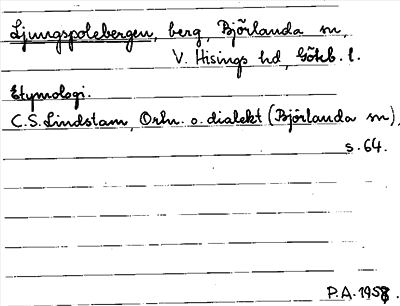 Ljungspolebergen, berg, Björlanda sn,
V. Hisings hd, Göteb. l.
Etymologi.
C.S. Lindstam, Ortn. o. dialekt (Björlanda sn),
s. 64.
P.A. 1958.